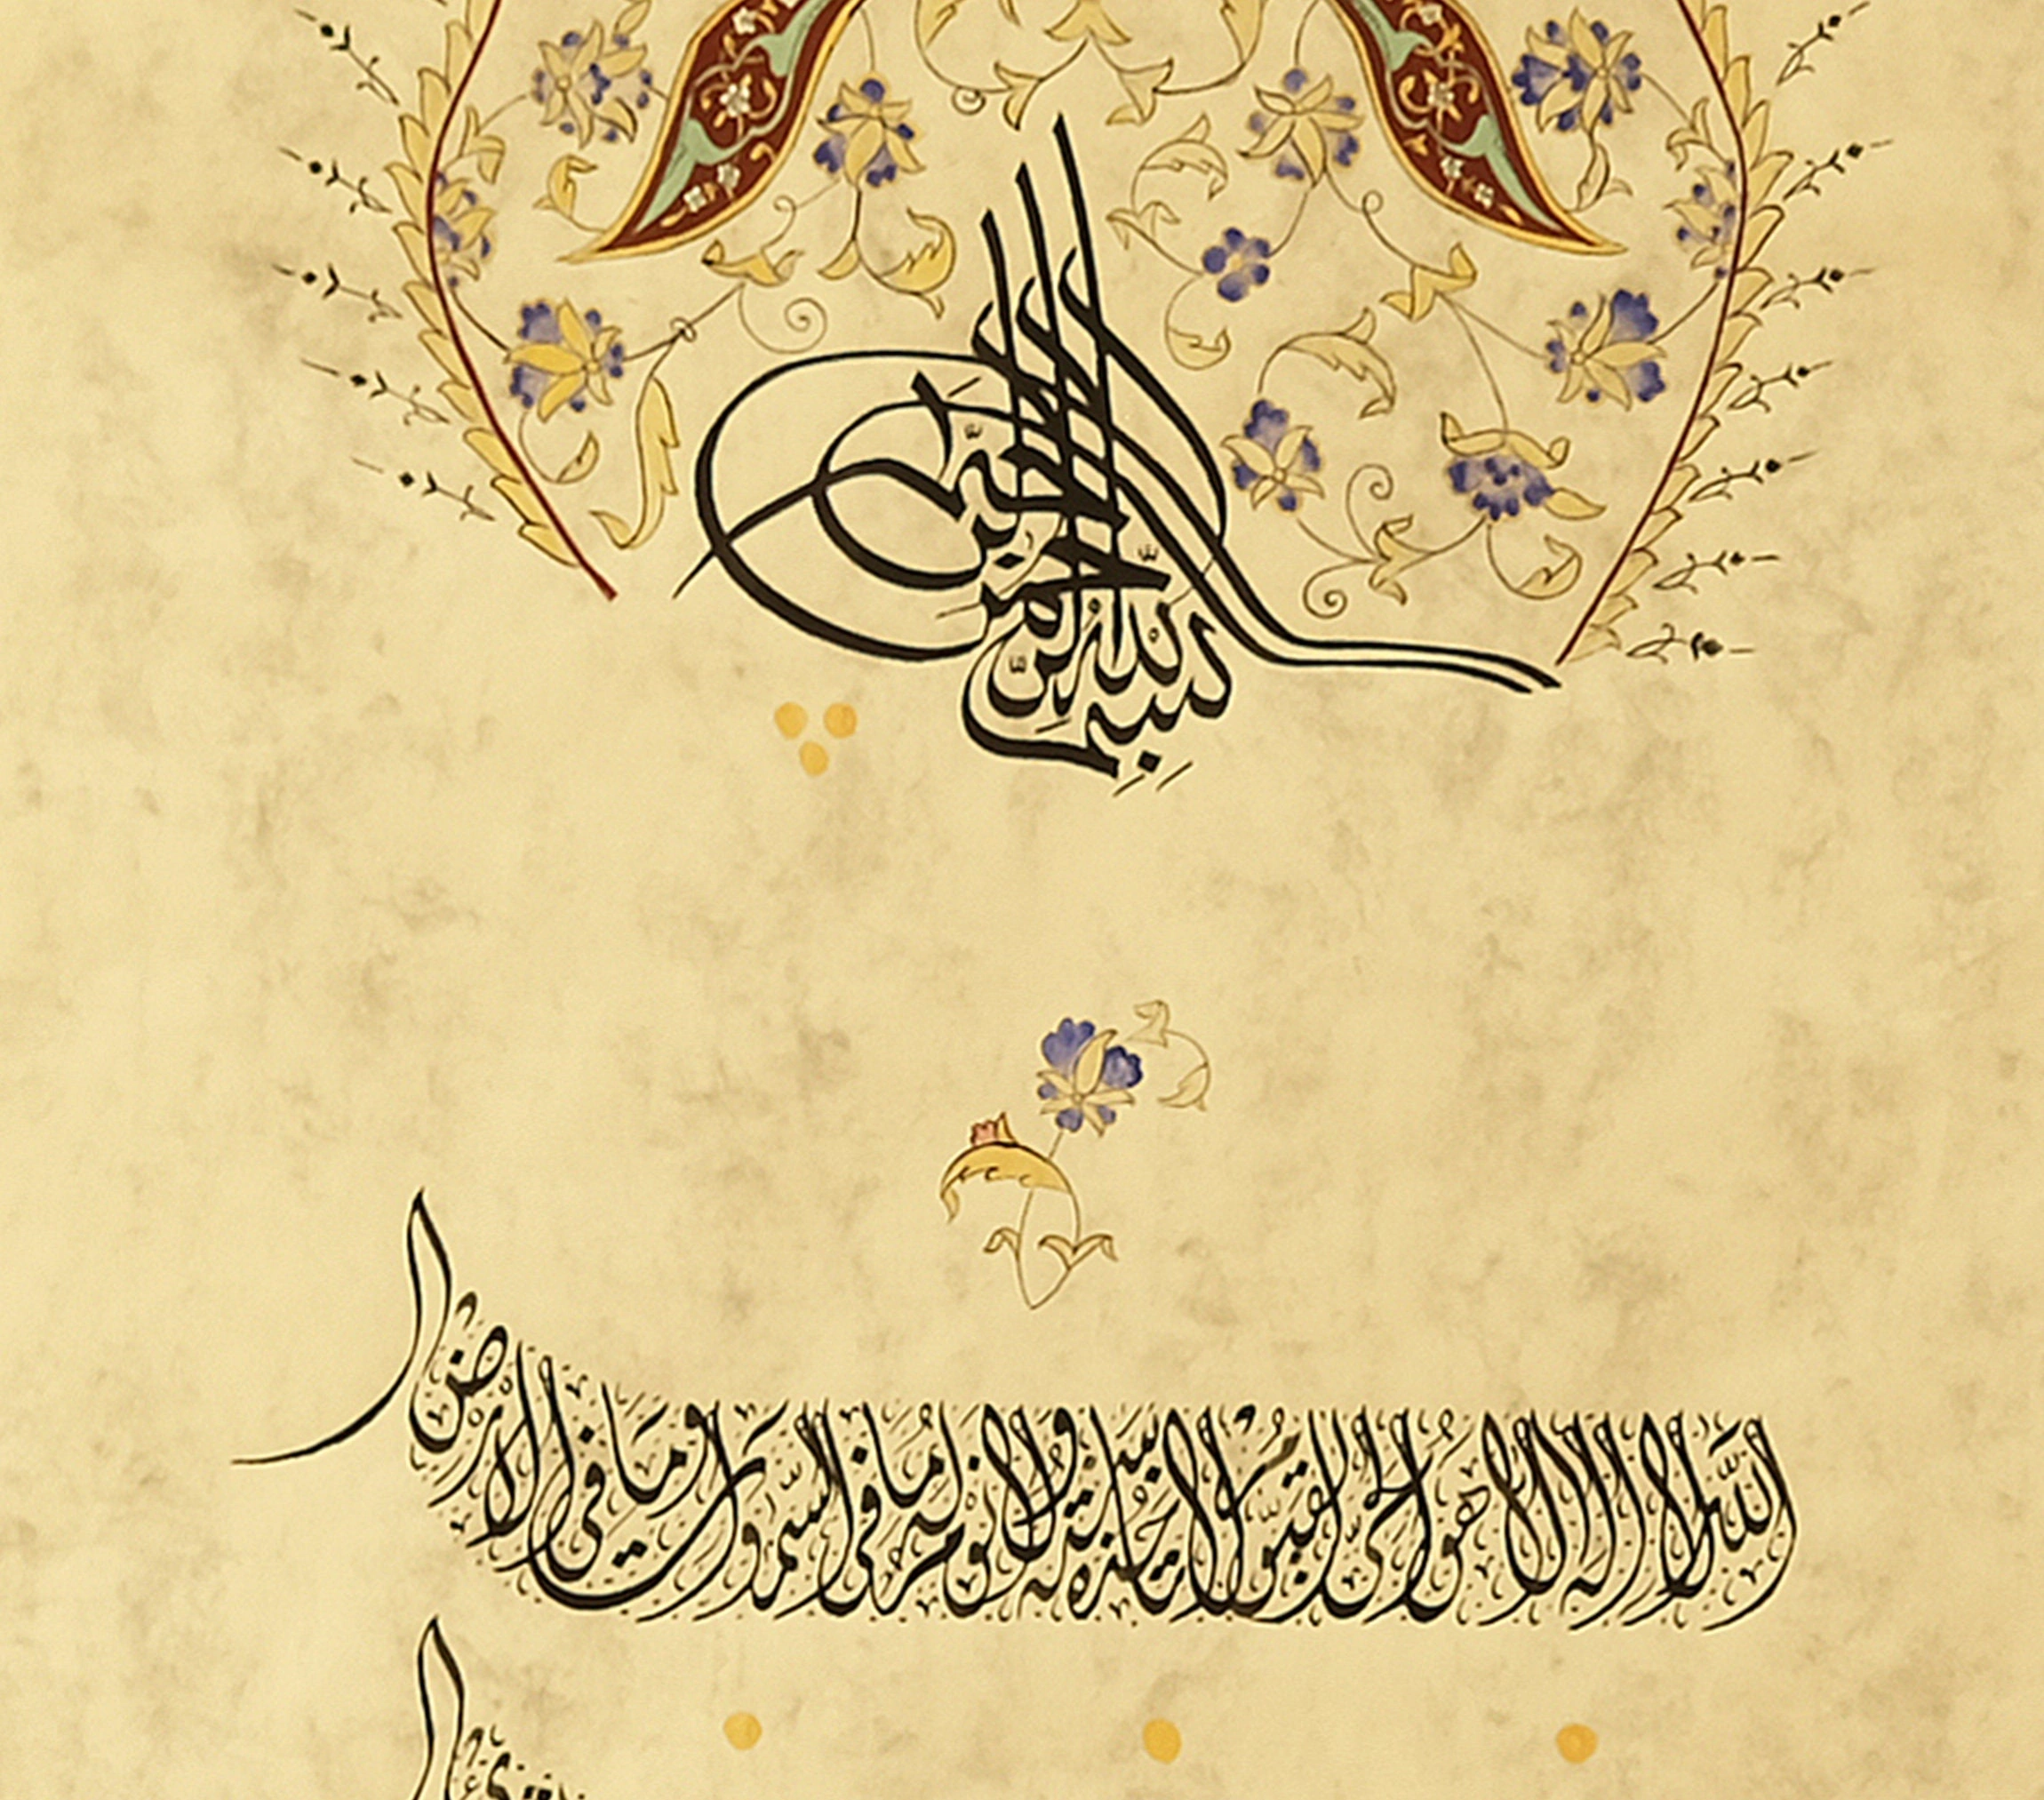 بسم الله الرحمن الرحيم
الله لا إله إلا هو الحي القيوم لا تأخذه سنة ولا نوم له ما في السموات وما في الأرض